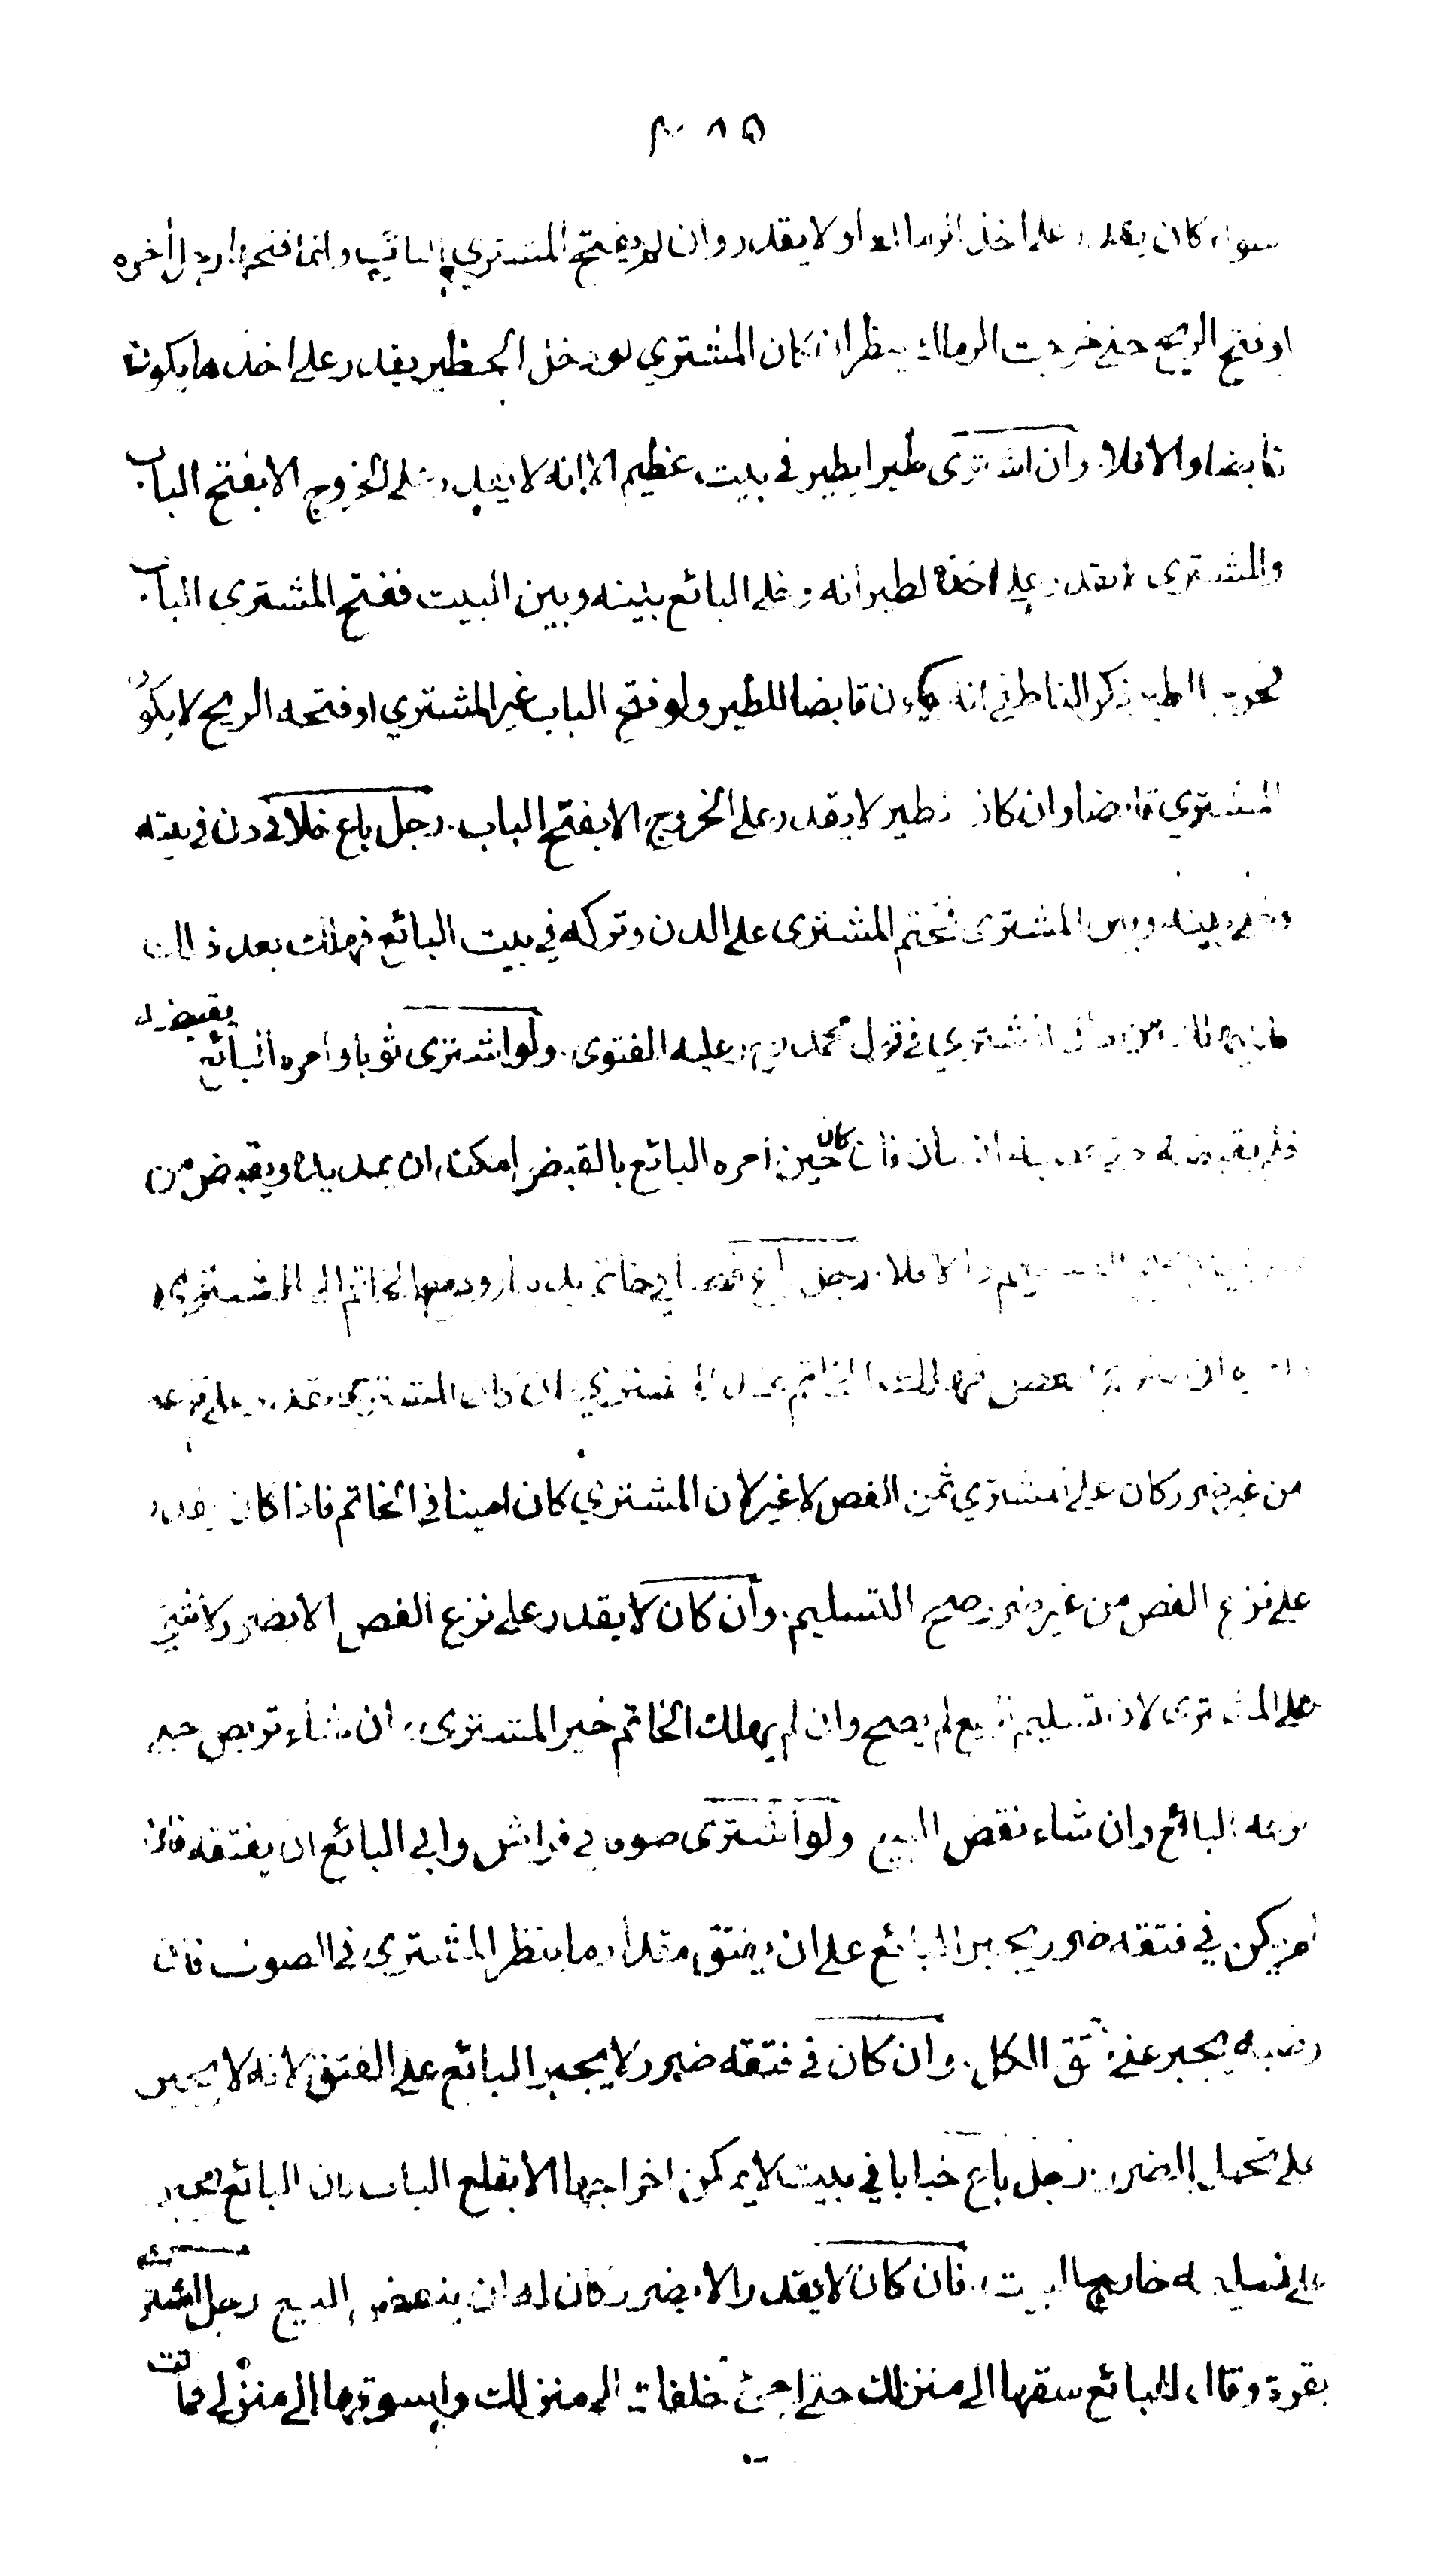 ٢٨٥
سواء كان يقدر على اخذ الرماك او لا يقدر وان لم يفتح المشتري الباب وانما فتحه رجل آخر
او فتح الريح حتى خرجت الرماك ينظر ان كان المشتري لو دخل الحظير يقدر على اخذها يكون
قابضا والا فلا. وان اشترى طيرا يطير في بيت عظيم الا انه لا يقدر على الخروج الا بفتح الباب
والمشترى لا يقدر على اخذه لطيرانه وخلى البائع بينه وبين البيت ففتح المشتري الباب
فخرج الطير ذكر الناطفي انه يكون قابضا للطير ولو فتح الباب غير المشتري او فتحه الريح لا يكون
المشتري قابضا وان كان الطير لا يقدر على الخروج الا بفتح الباب. رجل باع خلا في دن في بيته
وخلى بينه وبين المشترى فختم المشترى على الدن وتركه في بيت البائع فهلك بعد ذلك
فانه يهلك من مال المشتري في قول محمد رح وعليه الفتوى. ولو اشترى ثوبا وامره البائع بقبضه
فلم يقبضه حتى غصبه انسان فان كان حين امره البائع بالقبض امكنه ان يمد يده ويقبض من
غير قيام صح التسليم والا فلا. رجل باع فصا في خاتم بدينار ودفع الخاتم الى المشتري
الفص فهلك الخاتم عند المشتري فان كان المشتري يقدر على نزعه
من غير ضرر كان على المشتري ثمن الفص لا غير لان المشتري كان امينا في الخاتم فاذا كان يقدر
على نزع الفص من غير ضرر صح التسليم. وان كان لا يقدر على نزع الفص الا بضرر لا شئ
على المشترى لان تسليم البيع لم يصح وان لم يهلك الخاتم خير المشترى ان شاء تربص حتى
نزعه البائع وان شاء نقض البيع ولو اشترى صوفا في فراش وابى البائع ان يفتقه فان
لم يكن في فتقه ضرر يجبر البائع على ان يفتق مقدار ما ينظر المشتري في الصوف فان
رضيه يجبر على فتق الكل. وان كان في فتقه ضرر لا يجبر البائع على الفتق لانه لا يجبر
على تحمل الضرر. رجل باع خبابا في بيت لا يمكن اخراجها الا بقلع الباب فان البائع يجبر
على تسليمه خارج البيت. فان كان لا يقدر الا بضرر كان له ان ينقض البيع رجل اشترى
بقرة وقال للبائع سقها الى منزلك حتى اجئ خلفك الى منزلك واسوقها الى منزلي فماتت